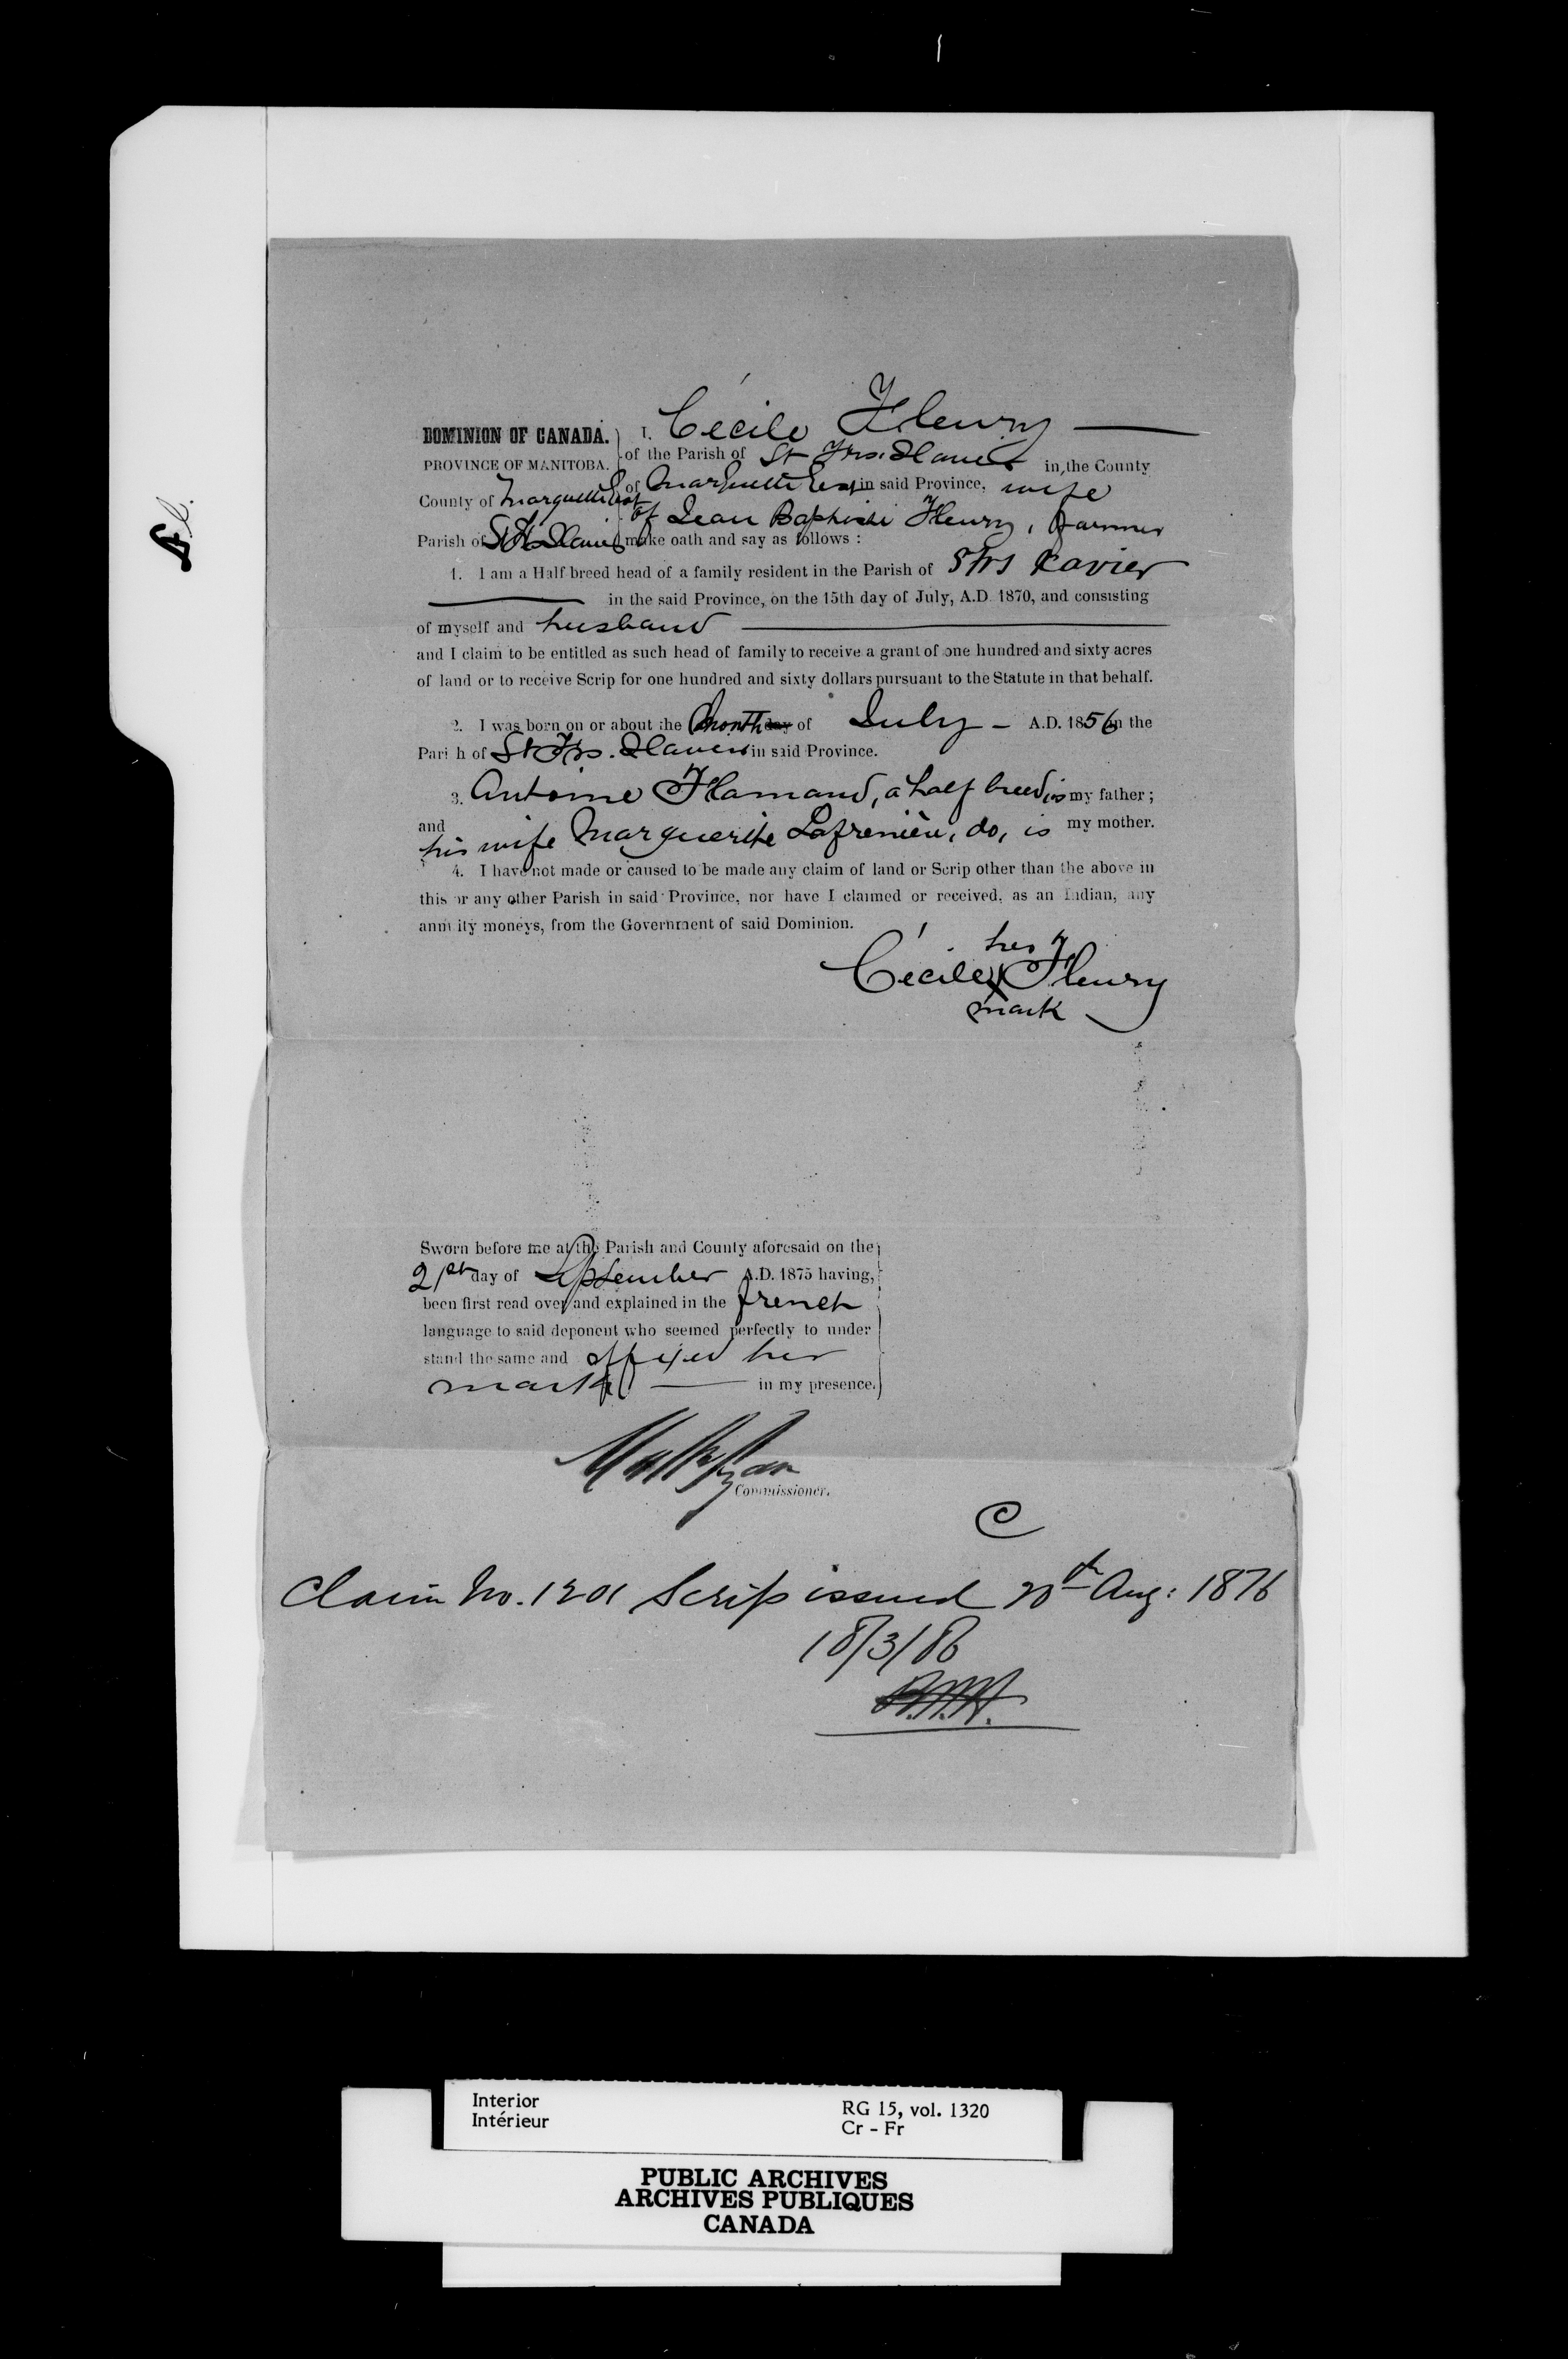 DOMINION OF CANADA.
PROVINCE OF MANITOBA.
County of Marquette East
Parish of St Frs. Xavier
I. Cécile Fleury
of the Parish of St Frs. Xavier in the County
of Marquette East in said Province, wife
of Jean Baptiste Fleury, farmer
make oath and say as follows :
1. I am a Half-breed head of a family resident in the Parish of St Frs Xavier
in the said Province, on the 15th day of July, A.D. 1870, and consisting
of myself and husband
and I claim to be entitled as such head of family to receive a grant of one hundred and sixty acres
of land or to receive Scrip for one hundred and sixty dollars pursuant to the Statute in that behalf.
2. I was born on or about the month day of July - A.D. 1856 in the
Parish of St Frs. Xavier in said Province.
3. Antoine Flamand, a half breed, is my father ;
and his wife Marguerite Lafrenière, do, is my mother.
4. I have not made or caused to be made any claim of land or Scrip other than the above in
this or any other Parish in said Province, nor have I claimed or received, as an Indian, any
annuity moneys, from the Government of said Dominion.
her
Cécile X Fleury
mark
Sworn before me at the Parish and County aforesaid on the
21st day of September A.D. 1875 having,
been first read over and explained in the french
language to said deponent who seemed perfectly to under
stand the same and affixed her
mark in my presence.
Commissioner.
C
Claim No. 1201 Scrip issued 20th Aug: 1876
18/3/86
Interior
Intérieur
RG 15, vol. 1320
Cr - Fr
PUBLIC ARCHIVES
ARCHIVES PUBLIQUES
CANADA